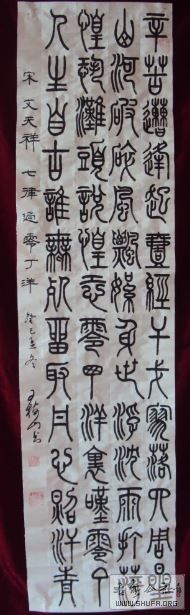 辛苦遭逢起壹經干戈寥落四周星
山河破碎風飄絮身世浮沈雨打萍
惶恐灘頭說惶恐零丁洋裏嘆零丁
人生自古誰無死留取丹心照汗青
宋 文天祥 七律 過零丁洋
癸巳
WWW.SHUFR.ORG